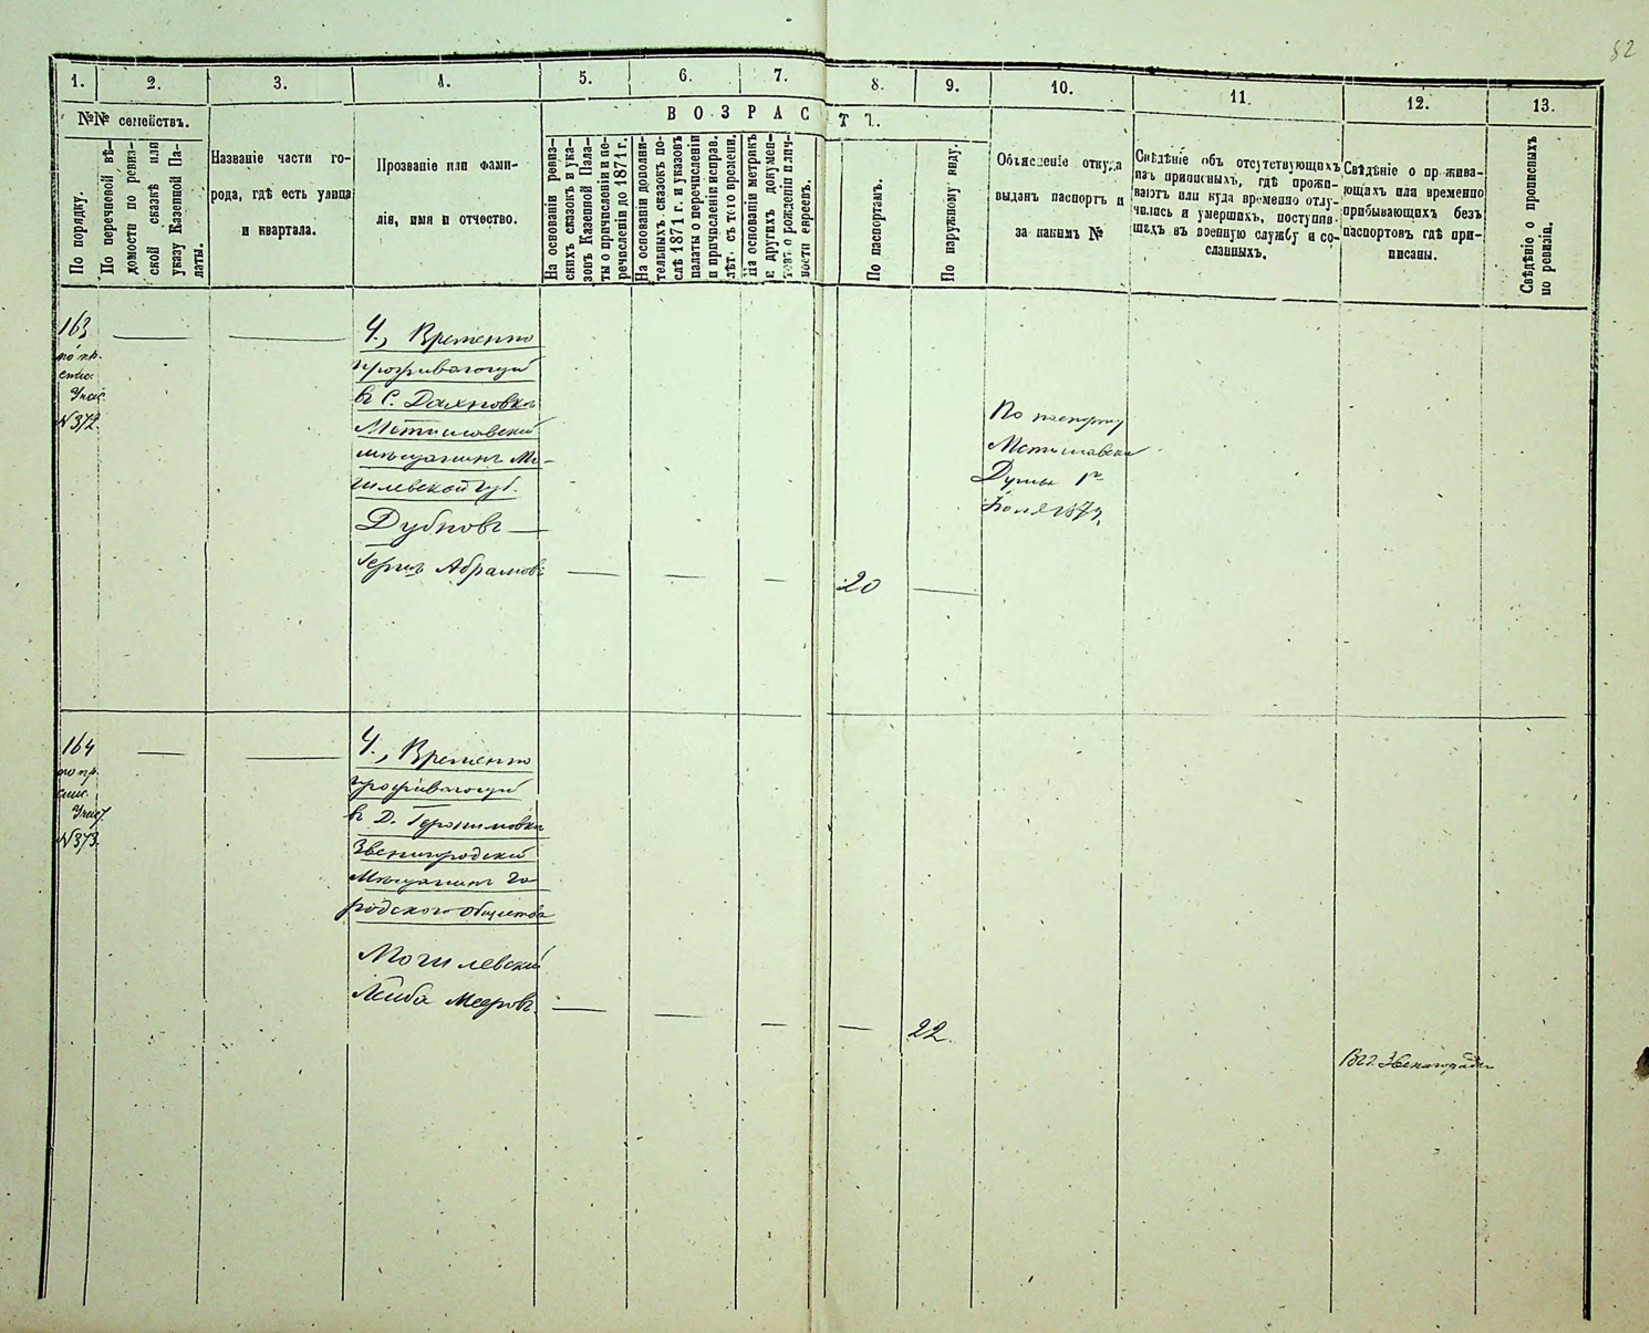 82
1. 2. 3. 4. 5. 6. 7. 8. 9. 10. 11. 12. 13.
№№ семействъ.
По порядку.
По перечневой вѣ-
домости по ревиз-
ской сказкѣ или
указу Казенной Па-
латы.
Названіе части го-
рода, гдѣ есть улица
и квартала.
Прозваніе или фами-
лія, имя и отчество.
ВОЗРАСТЪ.
На основаніи ревиз-
скихъ сказокъ и ука-
зовъ Казенной Пала-
ты о причисленіи и пе-
речисленіи до 1871 г.
На основаніи дополни-
тельныхъ сказокъ по-
слѣ 1871 г. и указовъ
палаты о перечисленіи
и причисленіи исправ.
лѣт. съ того времени.
На основаніи метрикъ
и другихъ докумен-
товъ о рожденіи и лич-
ности евреевъ.
По паспортамъ.
По наружному виду.
Объясненіе откуда
выданъ паспортъ и
за какимъ №
Свѣдѣніе объ отсутствующихъ
изъ приписныхъ, гдѣ прожи-
ваютъ или куда временно отлу-
чились и умершихъ, поступив-
шихъ въ военную службу и со-
сланныхъ.
Свѣдѣніе о прожива-
ющихъ или временно
прибывающихъ безъ
паспортовъ гдѣ при-
писаны.
Свѣдѣніе о прописныхъ
по ревизіи.
163
№372.
Ч., Временно
проживающій
въ С. Дахновкѣ
Мстиславскій
мѣщанинъ Мо-
гилевской губ.
Дубновъ
Герцъ Абрамовъ
20
По паспорту
Мстиславской
Думы 1го
Іюля 1874
164
по пр.
№373.
Ч., Временно
проживающій
въ Д. Геронимовкѣ
Звенигородскій
Мѣщанинъ го
родского общества
Могилевскій
Лейба Мееровъ.
22.